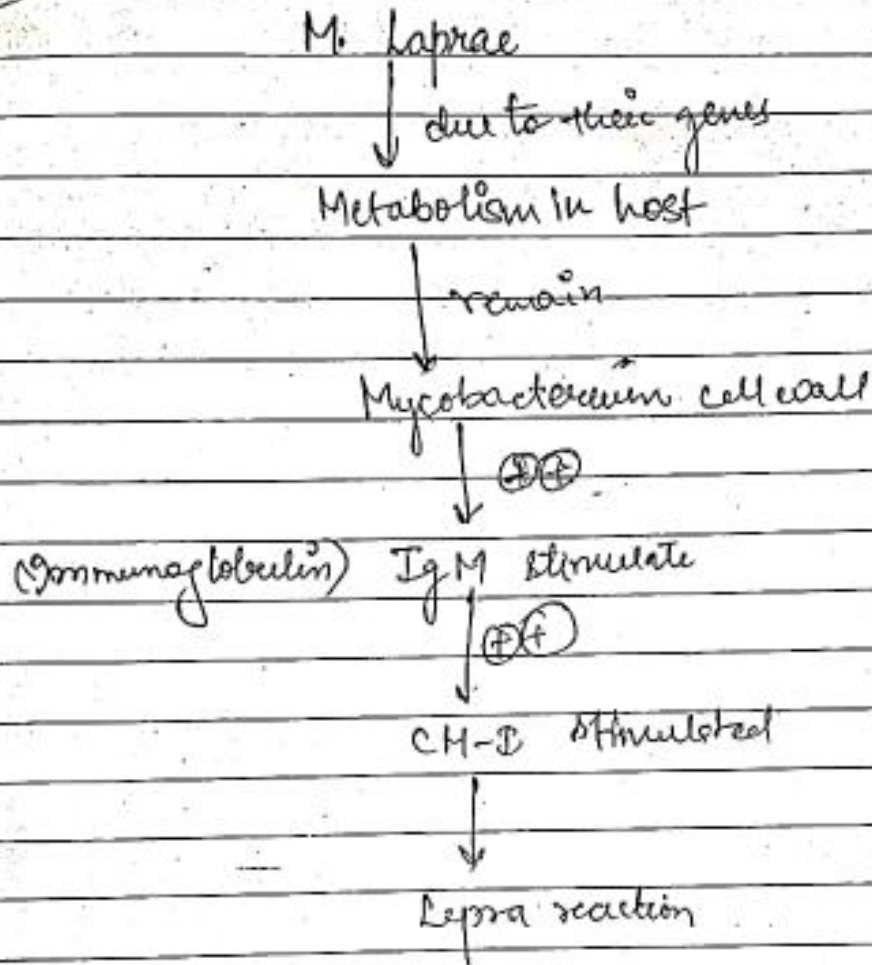 M. Laprae
due to their genes
Metabolism in host
remain
Mycobacterium cell wall
⊕⊕
(Immunoglobulin) IgM stimulate
⊕⊕
CM-I stimulated
Lepra reaction